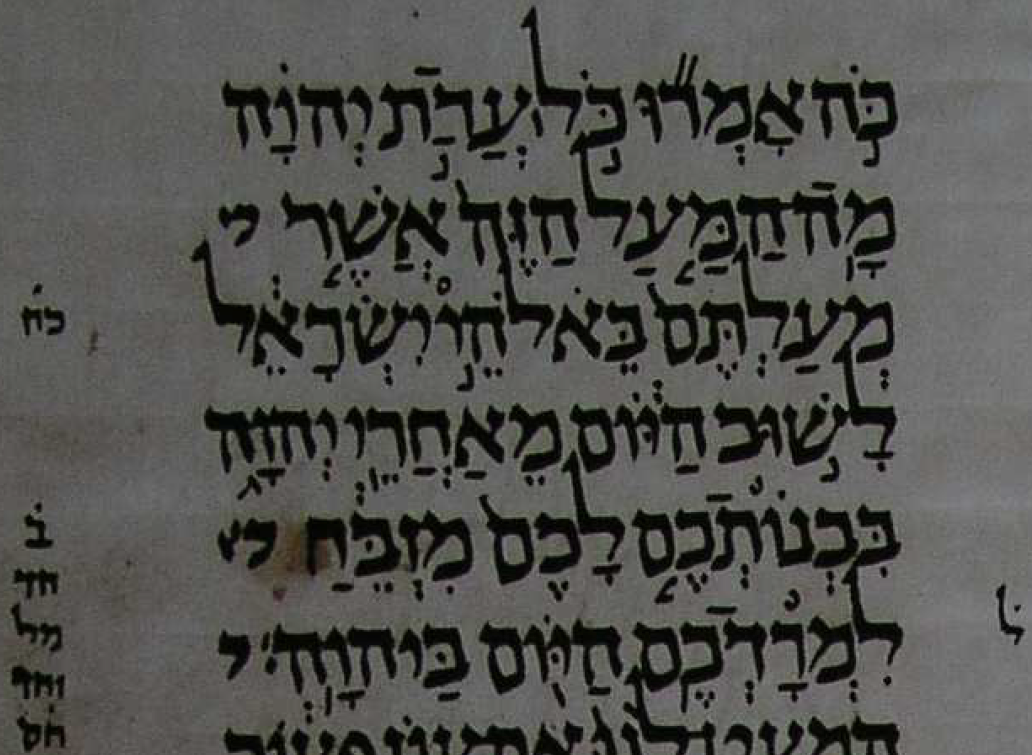 כֹּ֣ה אָמְר֞וּ כֹּ֣ל עֲדַ֣ת יְהוָ֗ה
מָֽה הַמַּ֤עַל הַזֶּה֙ אֲשֶׁ֤ר
מְעַלְתֶּם֙ בֵּאלֹהֵ֣י יִשְׂרָאֵ֔ל
לָשׁ֣וּב הַיּ֔וֹם מֵאַחֲרֵ֖י יְהוָ֑ה
בִּבְנוֹתְכֶ֤ם לָכֶם֙ מִזְבֵּ֔חַ
לִמְרָדְכֶ֥ם הַיּ֖וֹם בַּיהוָֽה׃
המעט לנו את עון פעור
כה
ב
חד
מל
וחד
חס
ל